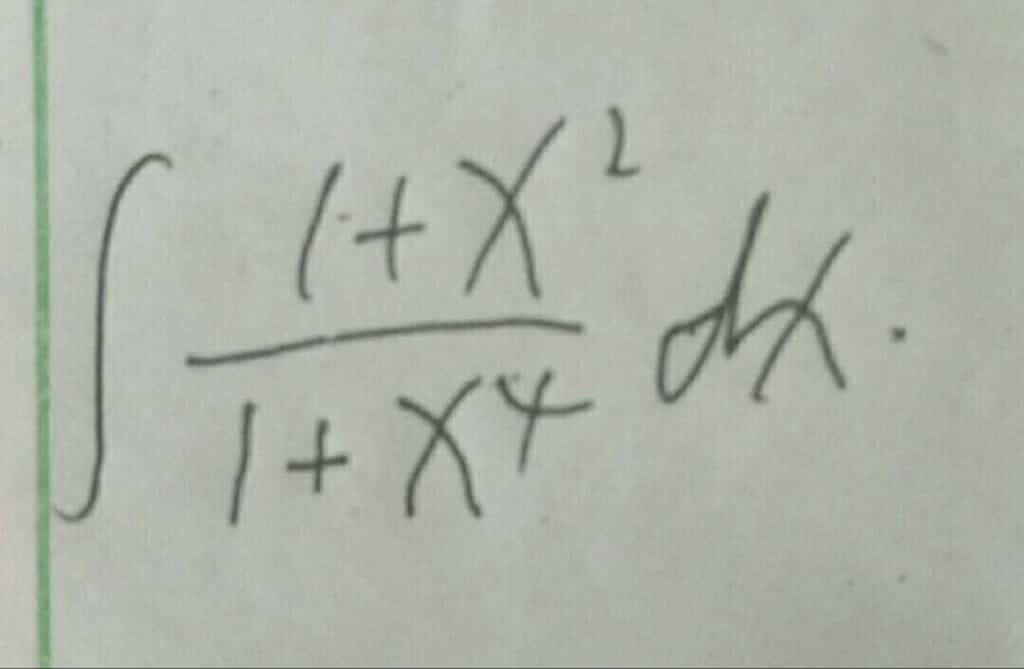 ∫ (1+x²)/(1+x⁴) dx.